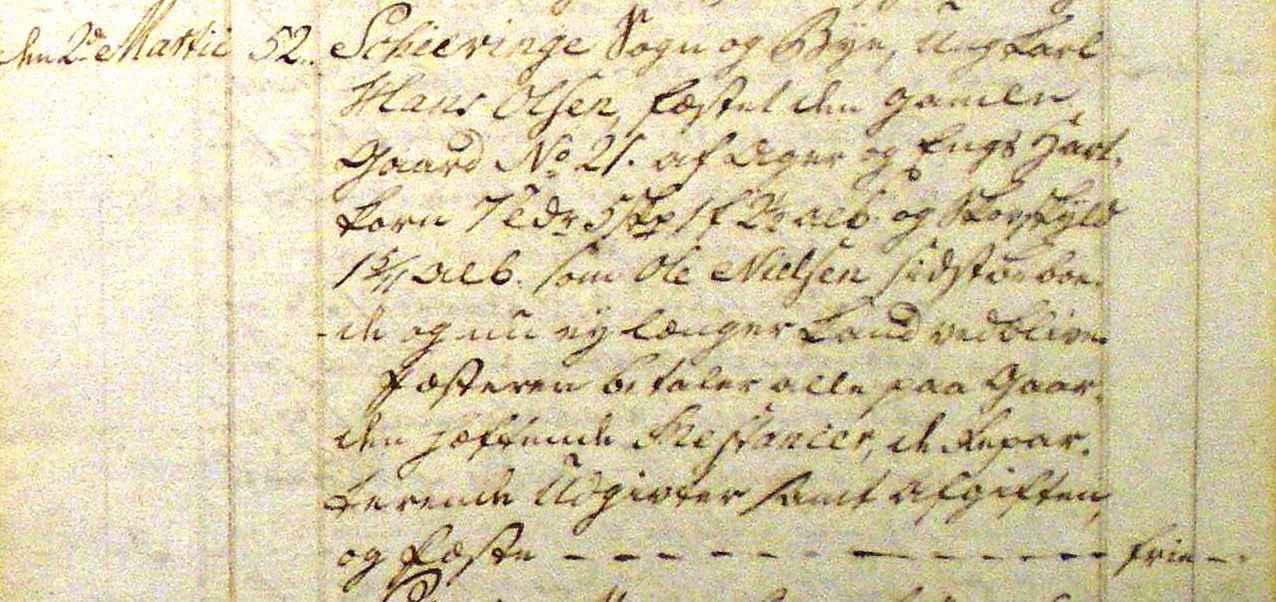 den 2de Martii 52. Schieringe Sogn og Bye, Ung Karl
Hans Olsen, fæstet den gamle
Gaard No 21. af Ager og Engs Hart-
korn 7 Tdr 5 Skp 1 f 2 alb og Skovskyld
alb. som Ole Nielsen sidst beboe-
de og nu ey længer kand vedblive
Fæsteren betaler alle paa Gaar-
den hæftende Restancer, de Repar-
terende Udgivter samt afgiften,
og Fæste — — — — — — — — — — frie —